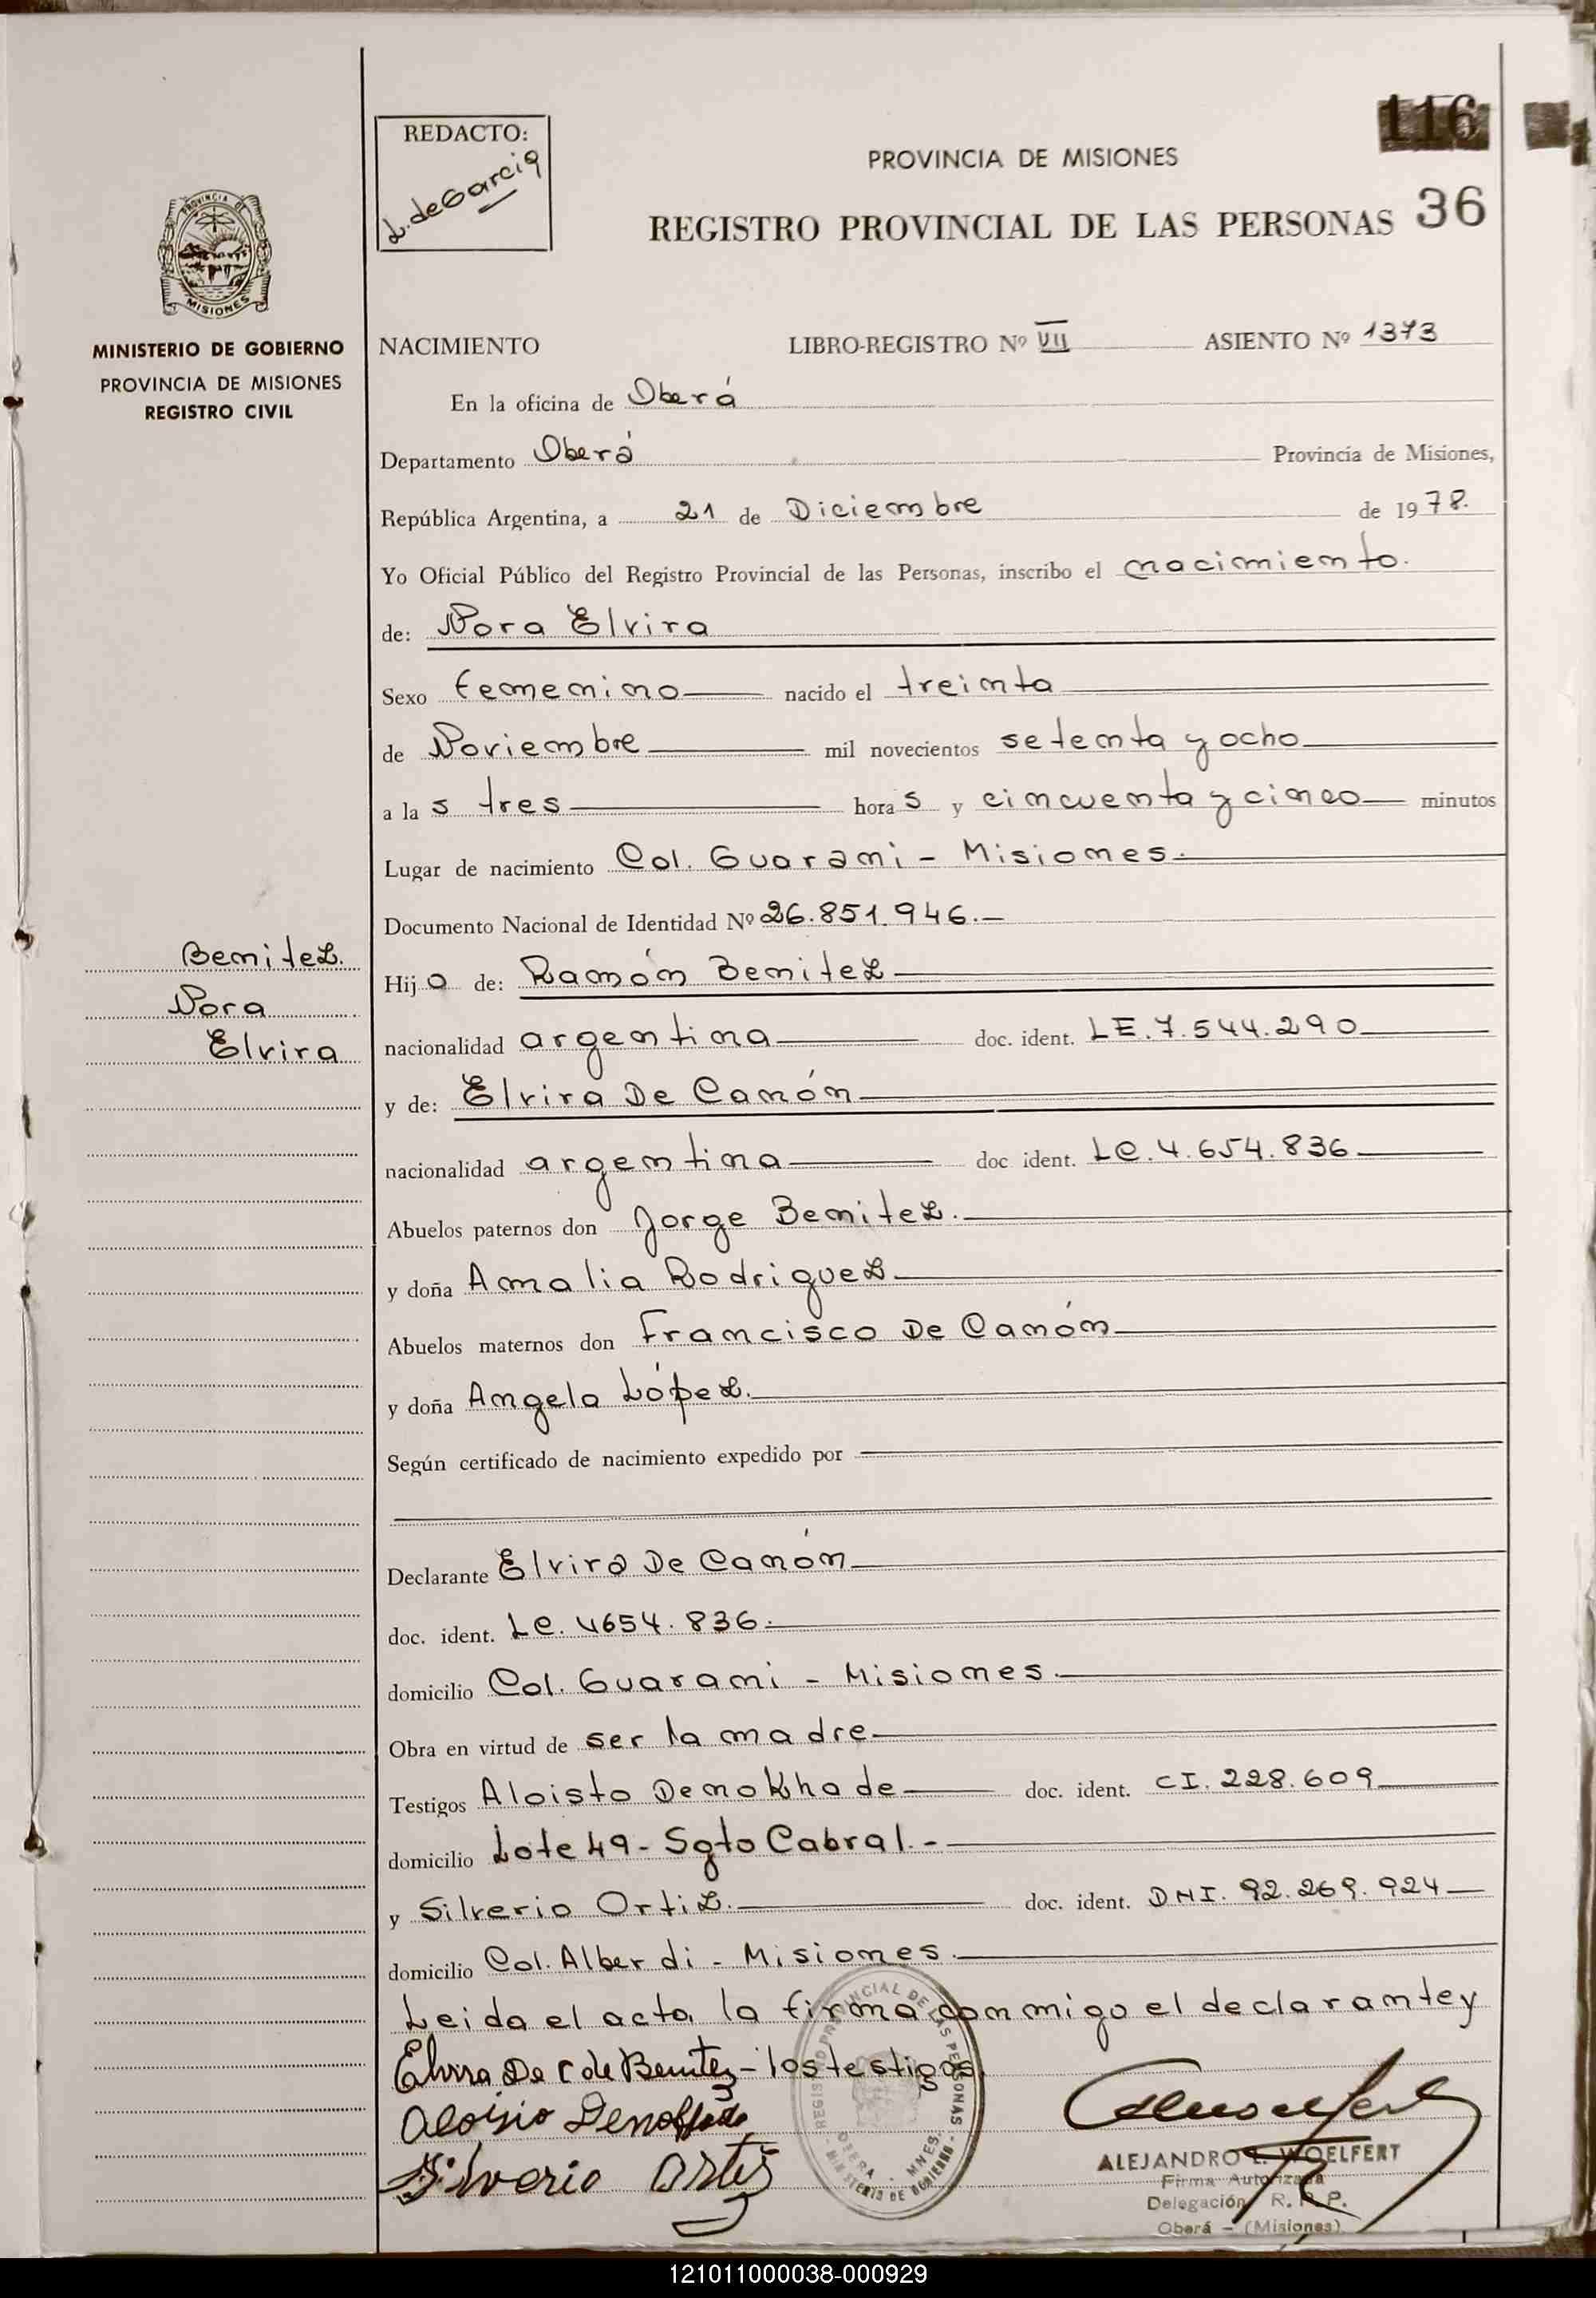 116
REDACTO:
L. de Garcia
PROVINCIA DE MISIONES
REGISTRO PROVINCIAL DE LAS PERSONAS 36
PROVINCIA DE
MISIONES
MINISTERIO DE GOBIERNO
PROVINCIA DE MISIONES
REGISTRO CIVIL
NACIMIENTO LIBRO-REGISTRO Nº VII ASIENTO Nº 1373
En la oficina de Oberá
Departamento Oberá Provincia de Misiones,
República Argentina, a 21 de Diciembre de 1978.
Yo Oficial Público del Registro Provincial de las Personas, inscribo el nacimiento.
de: Nora Elvira
Sexo femenino nacido el treinta
de Noviembre mil novecientos setenta y ocho
a la s tres hora s y cincuenta y cinco minutos
Lugar de nacimiento Col. Guarani - Misiones.
Documento Nacional de Identidad Nº 26.851.946.-
Benitez.
Nora
Elvira
Hij a de: Ramón Benitez
nacionalidad argentina doc. ident. LE. 7.544.290
y de: Elvira De Canón
nacionalidad argentina doc ident. LC. 4.654.836
Abuelos paternos don Jorge Benitez.
y doña Amalia Rodriguez
Abuelos maternos don Francisco De Canón
y doña Angela López.
Según certificado de nacimiento expedido por
Declarante Elvira De Canón
doc. ident. LC. 4654.836.
domicilio Col. Guarani - Misiones.
Obra en virtud de ser la madre
Testigos Aloisto Denokhade doc. ident. CI. 228.609
domicilio Lote 49 - Sgto Cabral. -
y Silverio Ortiz. doc. ident. DNI. 92.269.924
domicilio Col. Alberdi - Misiones.
Leida el acta, la firma conmigo el declarante y
Elvira De C de Benitez - los testigos
Aloisio
Silverio Ortiz
REGISTRO PROVINCIAL DE LAS PERSONAS
OBERA - MNES.
MINISTERIO DE GOBIERNO
ALEJANDRO E. WOELFERT
Firma Autorizada
Delegación R. P. P.
Oberá - (Misiones)
121011000038-000929